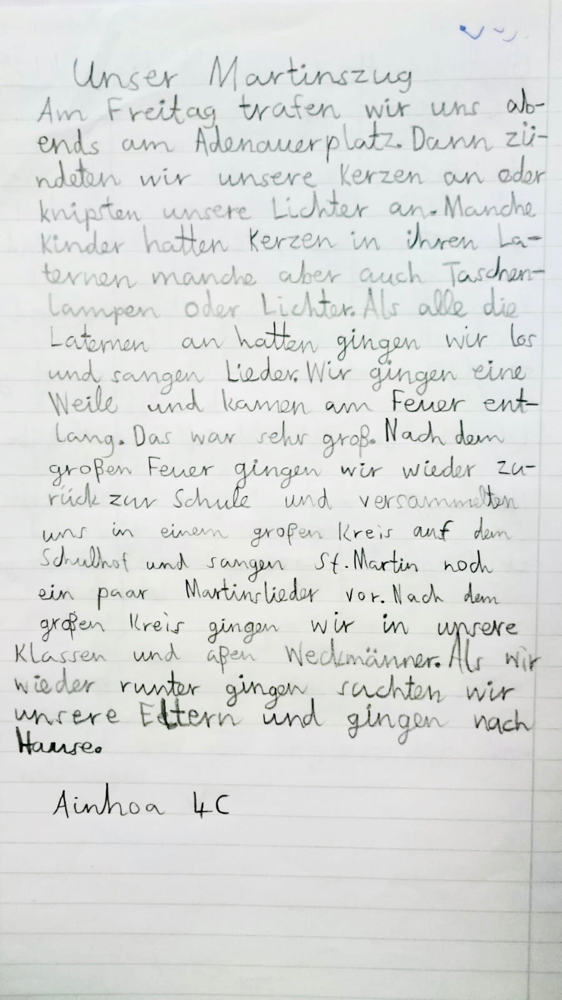 Unser Martinszug
Am Freitag trafen wir uns ab-
ends am Adenauerplatz. Dann zü-
ndeten wir unsere Kerzen an oder
knipsten unsere Lichter an. Manche
Kinder hatten Kerzen in ihren La-
ternen manche aber auch Taschen-
lampen oder Lichter. Als alle die
Laternen an hatten gingen wir los
und sangen Lieder. Wir gingen eine
Weile und kamen am Feuer ent-
lang. Das war sehr groß. Nach dem
großen Feuer gingen wir wieder zu-
rück zur Schule und versammelten
uns in einem großen Kreis auf dem
Schulhof und sangen St. Martin noch
ein paar Martinslieder vor. Nach dem
großen Kreis gingen wir in unsere
Klassen und aßen Weckmänner. Als wir
wieder runter gingen suchten wir
unsere Eltern und gingen nach
Hause.
Ainhoa 4C